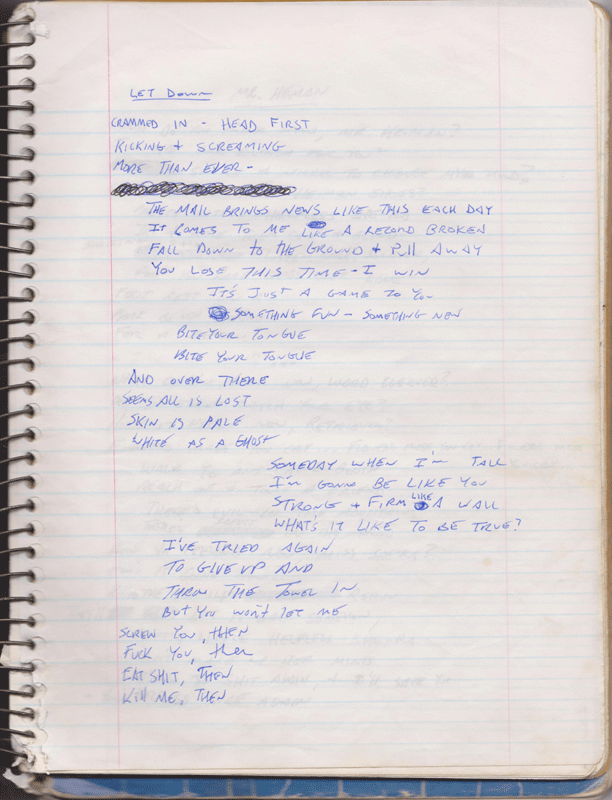 LET DOWN
CRAMMED IN - HEAD FIRST
KICKING + SCREAMING
MORE THAN EVER -
THE MAIL BRINGS NEWS LIKE THIS EACH DAY
IT COMES TO ME LIKE A RECORD BROKEN
FALL DOWN TO THE GROUND + PULL AWAY
YOU LOSE THIS TIME - I WIN
IT'S JUST A GAME TO YOU
SOMETHING FUN - SOMETHING NEW
BITE YOUR TONGUE
BITE YOUR TONGUE
AND OVER THERE
SEEMS ALL IS LOST
SKIN IS PALE
WHITE AS A GHOST
SOMEDAY WHEN I'M TALL
I'M GONNA BE LIKE YOU
STRONG + FIRM LIKE A WALL
WHAT'S IT LIKE TO BE TRUE?
I'VE TRIED AGAIN
TO GIVE UP AND
THROW THE TOWEL IN
BUT YOU WON'T LET ME
SCREW YOU, THEN
FUCK YOU, then
EAT SHIT, THEN
KILL ME, THEN